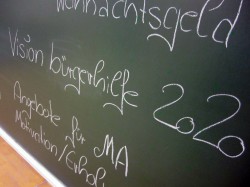 Weihnachtsgeld
Vision bürgerhilfe 2020
Angebote für MA
Motivation/Erhol